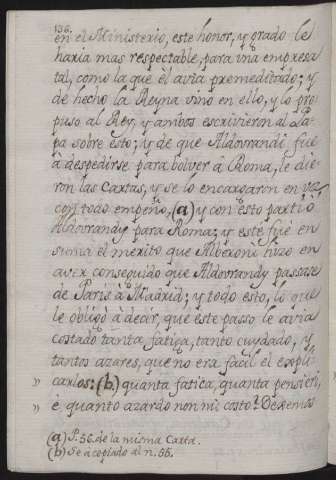 136.
en el Ministerio, este honor, y grado le
haria mas respectable, para una empressa
tal, como la que él avia premeditado; y
de hecho la Reyna vino en ello, y lo pro
puso al Rey, y ambos escrivieron al Pa
pa sobre esto; y de que Aldovrandi fue
à despedirse para bolver à Roma, le die
ron las Cartas, y se lo encargaron en voz
con todo empeño, (a) y con esto partiò
Aldovrandy para Roma; y este fue en
suma el merito que Alberoni hizo en
aver conseguido que Aldovrandy passase
de Paris à Madrid; y todo esto, lo que
le obligò à decir, que este passo le avia
costado tanta fatiga, tanto cuydado, y
tantos azares, que no era facil el expli
" carlos: (b) quanta fatica, quanta pensieri,
" è quanto azardo non mi costo? Dexemos
(a) P. 56. de la misma Carta.
(b) Se a copiado al n. 55.